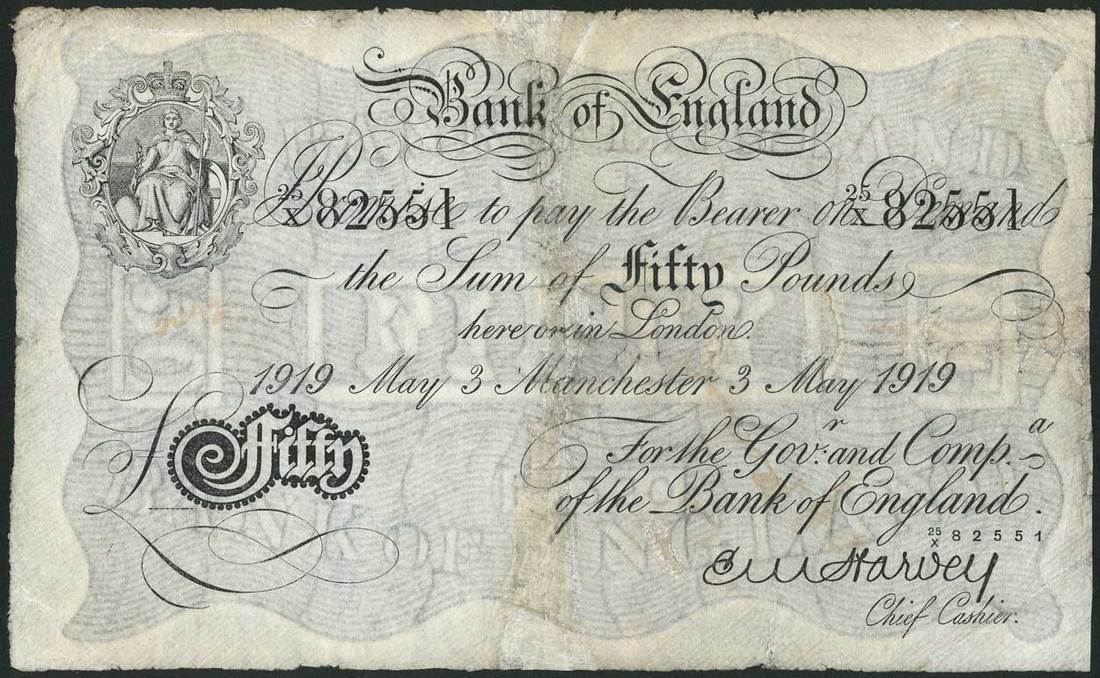 Bank of England
25/X 82551 I Promise to pay the Bearer on Demand 25/X 82551
the Sum of Fifty Pounds
here or in London.
1919 May 3 Manchester 3 May 1919
£ Fifty
For the Govr. and Compa.
of the Bank of England.
25/X 82551
E M Harvey
Chief Cashier.